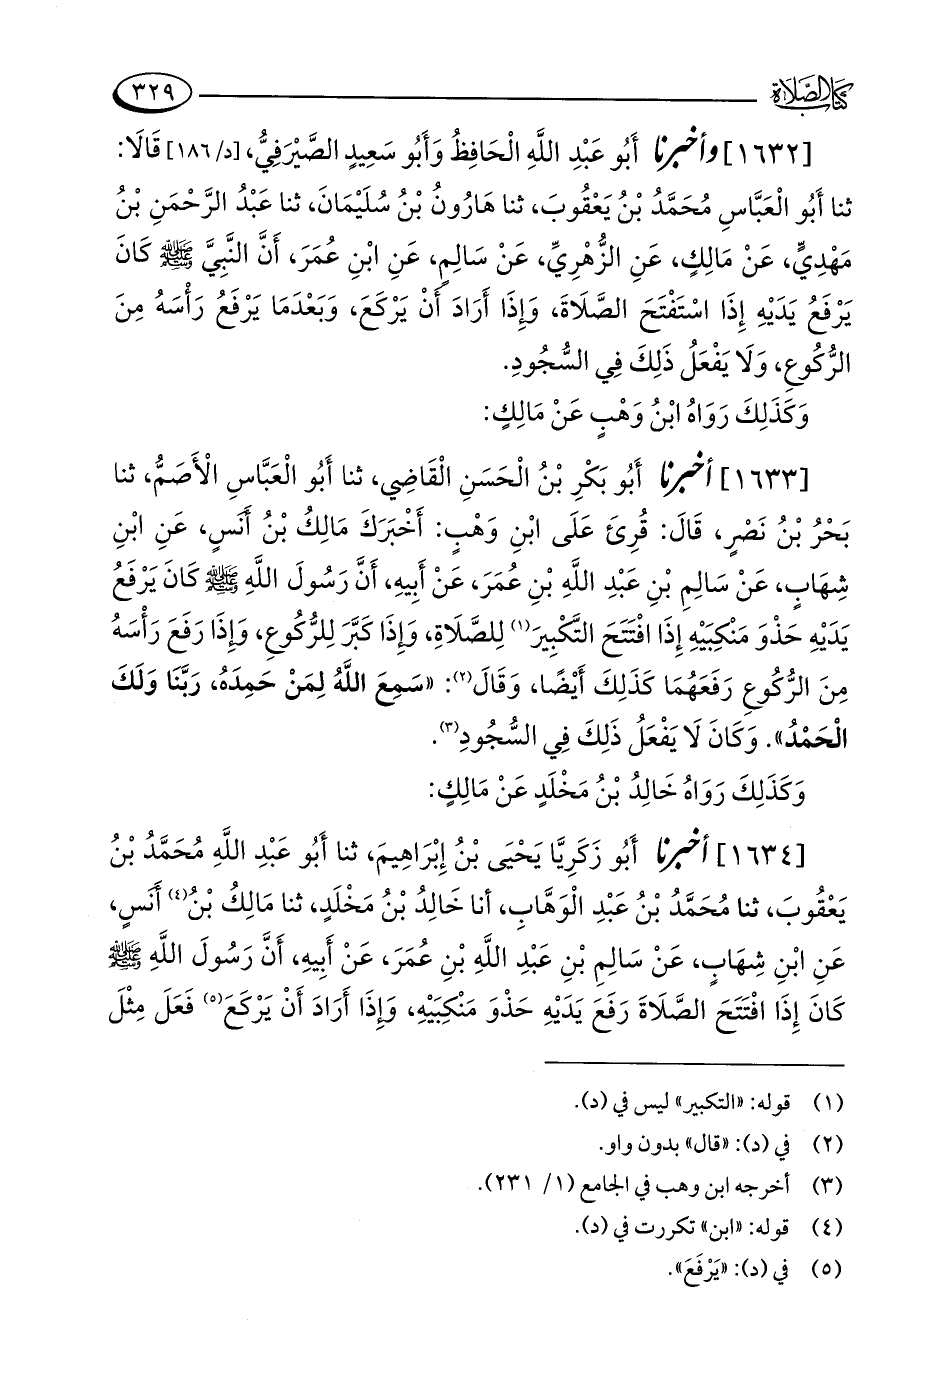 كتاب الصلاة ٣٢٩
[١٦٣٢] وأخبرنا أَبُو عَبْدِ اللَّهِ الْحَافِظُ وَأَبُو سَعِيدٍ الصَّيْرَفِيُّ، [د/ ١٨٦] قَالَا:
ثنا أَبُو الْعَبَّاسِ مُحَمَّدُ بْنُ يَعْقُوبَ، ثنا هَارُونُ بْنُ سُلَيْمَانَ، ثنا عَبْدُ الرَّحْمَنِ بْنُ
مَهْدِيٍّ، عَنْ مَالِكٍ، عَنِ الزُّهْرِيِّ، عَنْ سَالِمٍ، عَنِ ابْنِ عُمَرَ، أَنَّ النَّبِيَّ ﷺ كَانَ
يَرْفَعُ يَدَيْهِ إِذَا اسْتَفْتَحَ الصَّلَاةَ، وَإِذَا أَرَادَ أَنْ يَرْكَعَ، وَبَعْدَمَا يَرْفَعُ رَأْسَهُ مِنَ
الرُّكُوعِ، وَلَا يَفْعَلُ ذَلِكَ فِي السُّجُودِ.
وَكَذَلِكَ رَوَاهُ ابْنُ وَهْبٍ عَنْ مَالِكٍ:
[١٦٣٣] أخبرنا أَبُو بَكْرِ بْنُ الْحَسَنِ الْقَاضِي، ثنا أَبُو الْعَبَّاسِ الْأَصَمُّ، ثنا
بَحْرُ بْنُ نَصْرٍ، قَالَ: قُرِئَ عَلَى ابْنِ وَهْبٍ: أَخْبَرَكَ مَالِكُ بْنُ أَنَسٍ، عَنِ ابْنِ
شِهَابٍ، عَنْ سَالِمِ بْنِ عَبْدِ اللَّهِ بْنِ عُمَرَ، عَنْ أَبِيهِ، أَنَّ رَسُولَ اللَّهِ ﷺ كَانَ يَرْفَعُ
يَدَيْهِ حَذْوَ مَنْكِبَيْهِ إِذَا افْتَتَحَ التَّكْبِيرَ(١) لِلصَّلَاةِ، وَإِذَا كَبَّرَ لِلرُّكُوعِ، وَإِذَا رَفَعَ رَأْسَهُ
مِنَ الرُّكُوعِ رَفَعَهُمَا كَذَلِكَ أَيْضًا، وَقَالَ(٢): «سَمِعَ اللَّهُ لِمَنْ حَمِدَهُ، رَبَّنَا وَلَكَ
الْحَمْدُ». وَكَانَ لَا يَفْعَلُ ذَلِكَ فِي السُّجُودِ(٣).
وَكَذَلِكَ رَوَاهُ خَالِدُ بْنُ مَخْلَدٍ عَنْ مَالِكٍ:
[١٦٣٤] أخبرنا أَبُو زَكَرِيَّا يَحْيَى بْنُ إِبْرَاهِيمَ، ثنا أَبُو عَبْدِ اللَّهِ مُحَمَّدُ بْنُ
يَعْقُوبَ، ثنا مُحَمَّدُ بْنُ عَبْدِ الْوَهَّابِ، أنا خَالِدُ بْنُ مَخْلَدٍ، ثنا مَالِكُ بْنُ(٤) أَنَسٍ،
عَنِ ابْنِ شِهَابٍ، عَنْ سَالِمِ بْنِ عَبْدِ اللَّهِ بْنِ عُمَرَ، عَنْ أَبِيهِ، أَنَّ رَسُولَ اللَّهِ ﷺ
كَانَ إِذَا افْتَتَحَ الصَّلَاةَ رَفَعَ يَدَيْهِ حَذْوَ مَنْكِبَيْهِ، وَإِذَا أَرَادَ أَنْ يَرْكَعَ(٥) فَعَلَ مِثْلَ
(١) قوله: «التكبير» ليس في (د).
(٢) في (د): «قال» بدون واو.
(٣) أخرجه ابن وهب في الجامع (١/ ٢٣١).
(٤) قوله: «ابن» تكررت في (د).
(٥) في (د): «يَرْفَعَ».